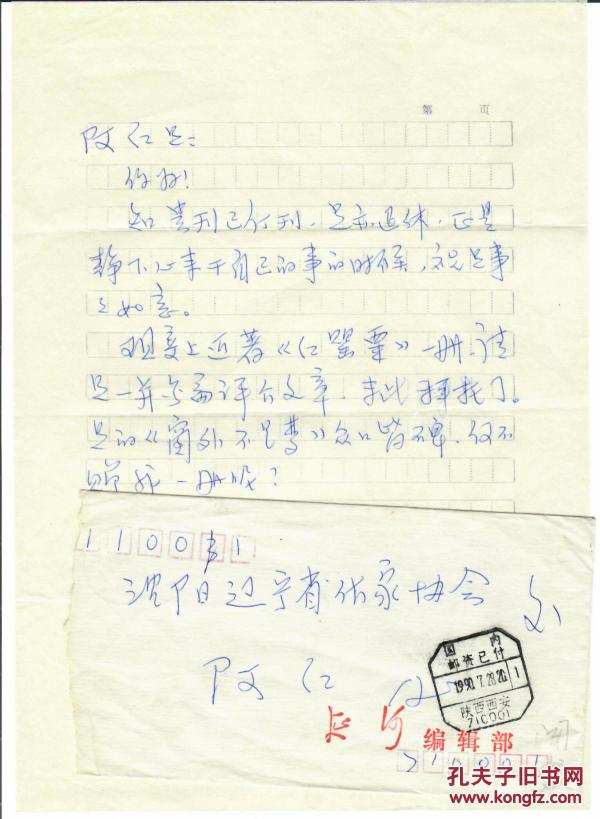 第 页
阿红兄:
你好!
知贵刊已停刊,兄亦退休,正是
静下心来干自己的事的时候,祝兄事
事如意。
现寄上近著《红罂粟》一册,请
兄一并写篇评介文章,在此拜托了。
兄的《窗外不是梦》众口皆碑,何不
赠我一册呢?
110001
沈阳辽宁省作家协会
阿红
国内
邮资已付
1990.7.28.20
1
陕西西安
710001
延河 编辑部
710001
孔夫子旧书网
www.kongfz.com